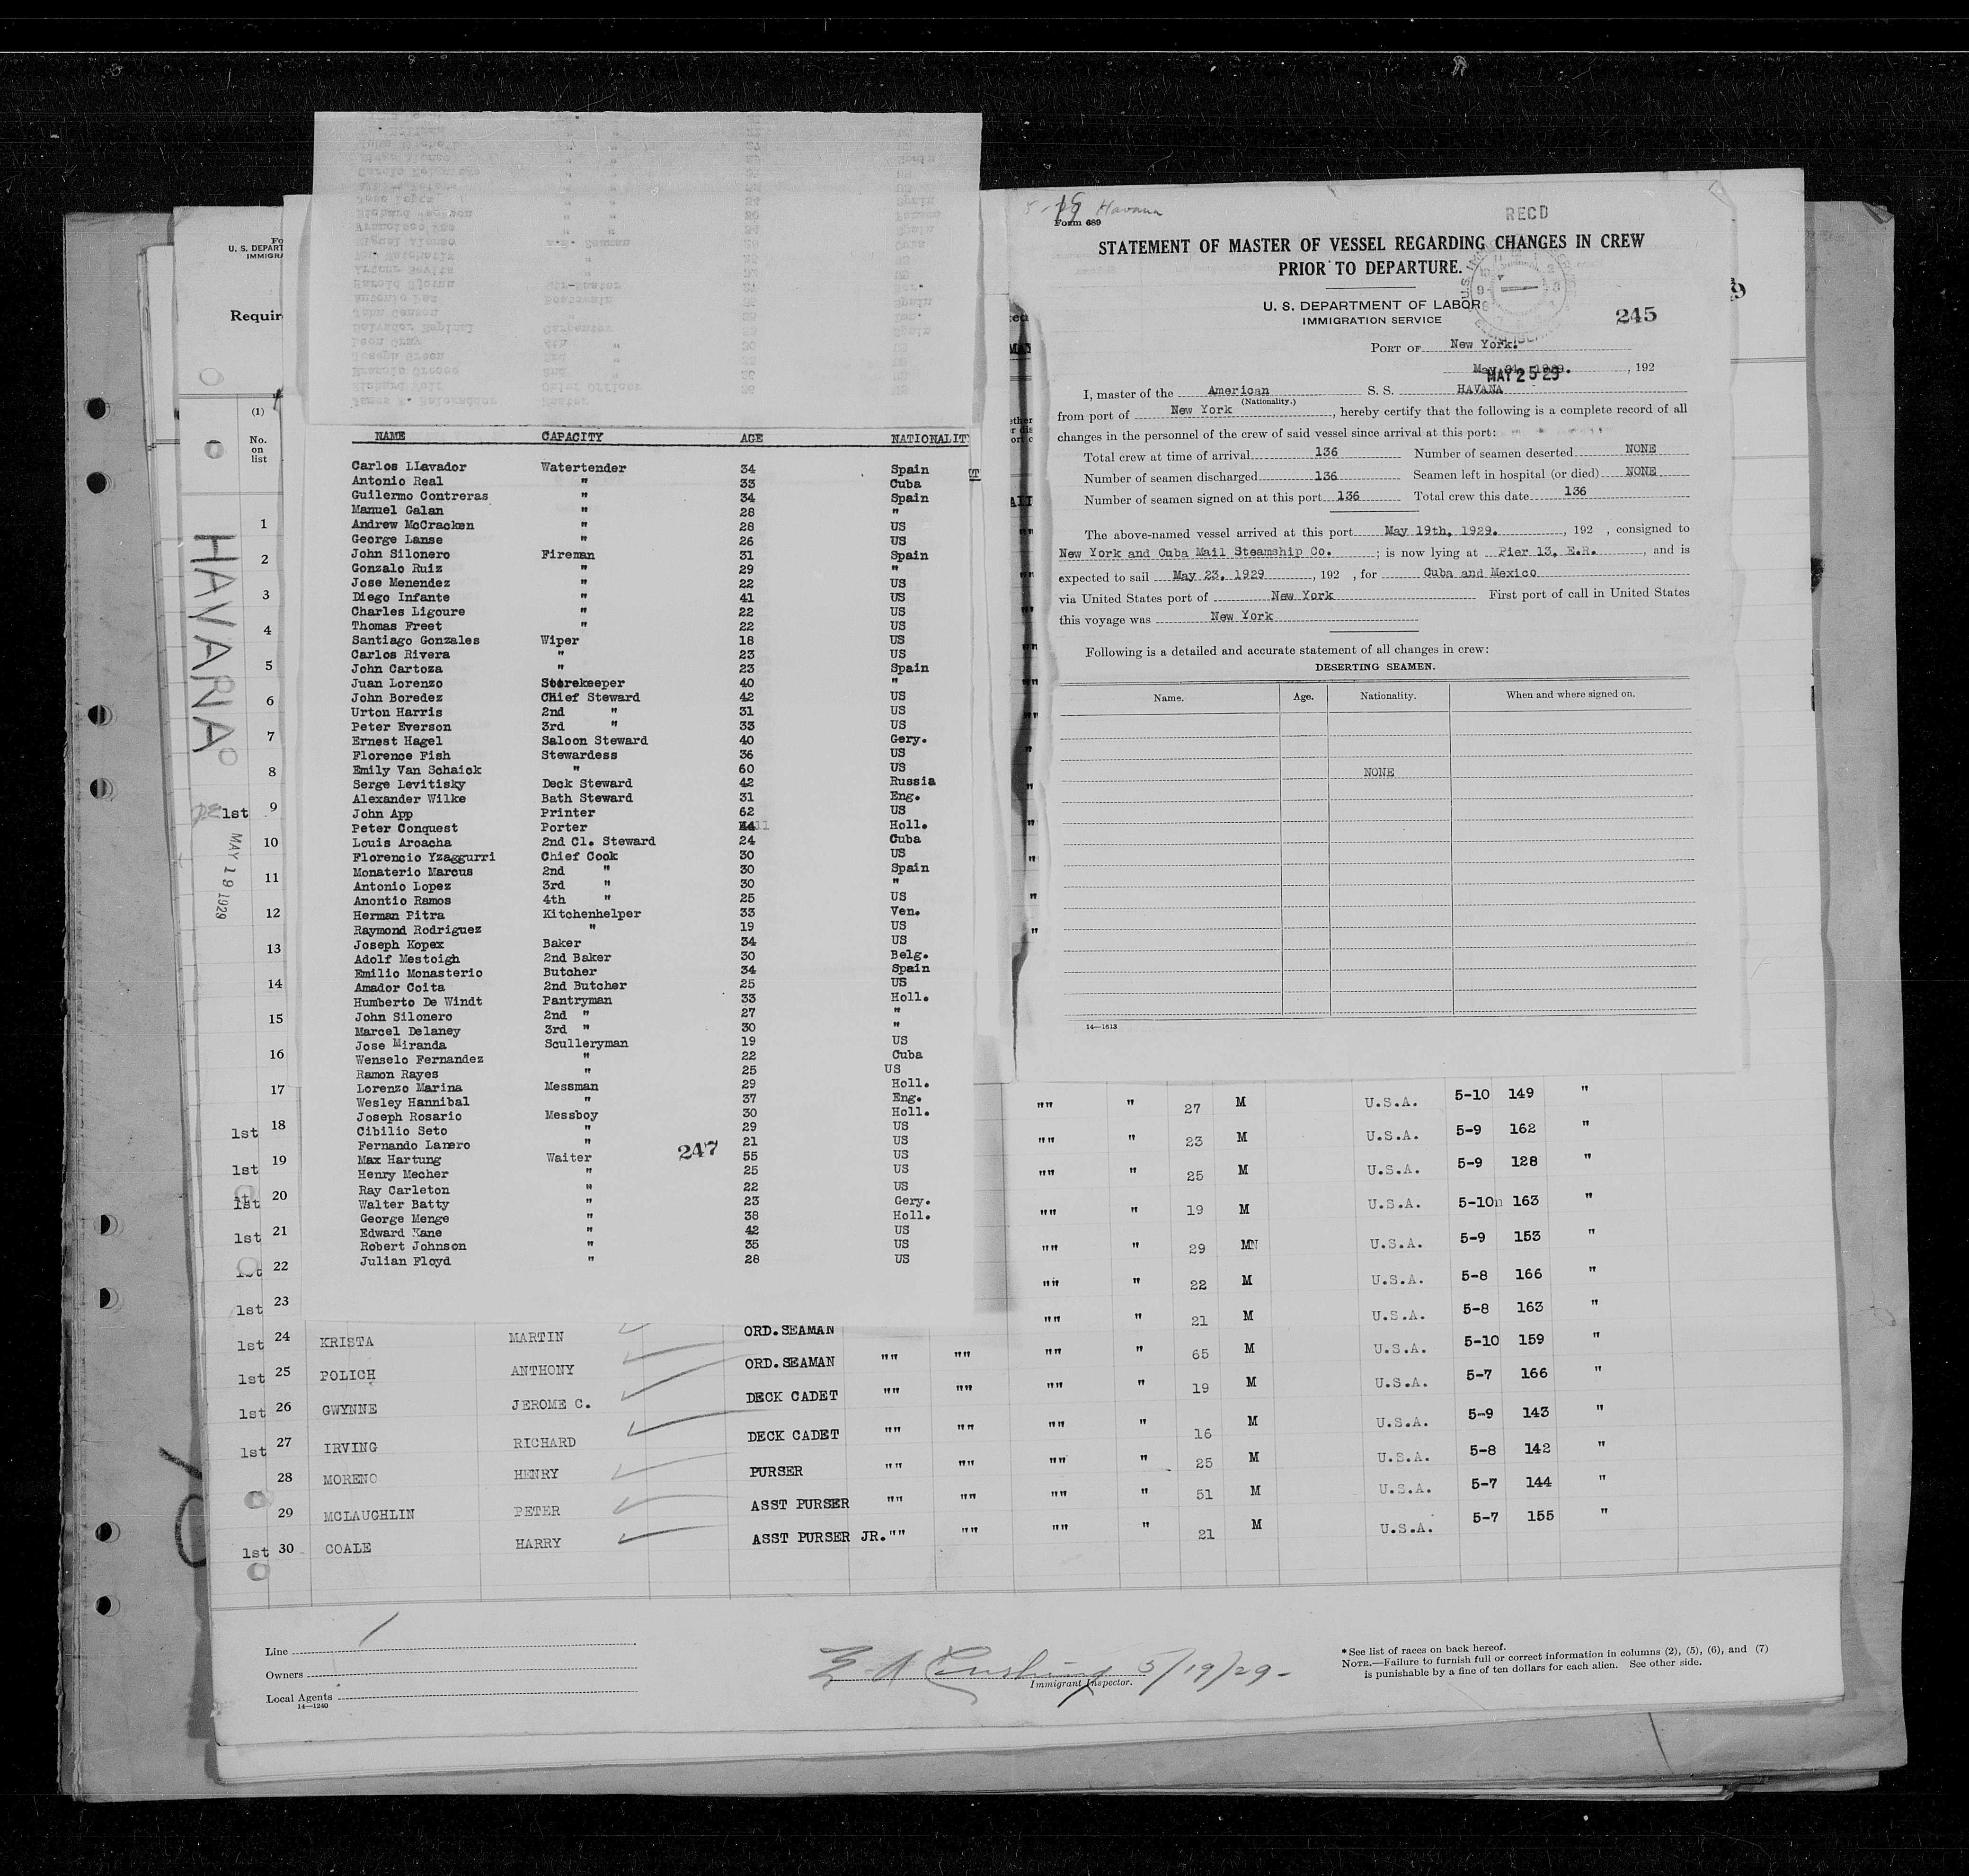 Form 689
5-19 Havana
RECD
STATEMENT OF MASTER OF VESSEL REGARDING CHANGES IN CREW
PRIOR TO DEPARTURE.
U. S. DEPARTMENT OF LABOR
IMMIGRATION SERVICE
245
PORT OF New York.
MAY 25 29 , 192
I, master of the American S. S. HAVANA
(Nationality.)
from port of New York, hereby certify that the following is a complete record of all
changes in the personnel of the crew of said vessel since arrival at this port:
Total crew at time of arrival 136 Number of seamen deserted NONE
Number of seamen discharged 136 Seamen left in hospital (or died) NONE
Number of seamen signed on at this port 136 Total crew this date 136
The above-named vessel arrived at this port May 19th, 1929. , 192 , consigned to
New York and Cuba Mail Steamship Co. ; is now lying at Pier 13, E.R. , and is
expected to sail May 23, 1929 , 192 , for Cuba and Mexico
via United States port of New York First port of call in United States
this voyage was New York
Following is a detailed and accurate statement of all changes in crew:
DESERTING SEAMEN.
Name. Age. Nationality. When and where signed on.
NONE
14—1613
U. S. DEPART
IMMIGRA
Requir
(1)
No.
on
list
HAVANA
MAY 19 1929
NAME CAPACITY AGE NATIONALIT
Carlos LLavador Watertender 34 Spain
Antonio Real " 33 Cuba
Guilermo Contreras " 34 Spain
Manuel Galan " 28 "
Andrew McCracken " 28 US
George Lanse " 26 US
John Silonero Fireman 31 Spain
Gonzalo Ruiz " 29 "
Jose Menendez " 22 US
Diego Infante " 41 US
Charles Ligoure " 22 US
Thomas Freet " 22 US
Santiago Gonzales Wiper 18 US
Carlos Rivera " 23 US
John Cartoza " 23 Spain
Juan Lorenzo Storekeeper 40 "
John Boredez Chief Steward 42 US
Urton Harris 2nd " 31 US
Peter Everson 3rd " 33 US
Ernest Hagel Saloon Steward 40 Gery.
Florence Fish Stewardess 36 US
Emily Van Schaick " 60 US
Serge Levitisky Deck Steward 42 Russia
Alexander Wilke Bath Steward 31 Eng.
John App Printer 62 US
Peter Conquest Porter 44 Holl.
Louis Aroacha 2nd Cl. Steward 24 Cuba
Florencio Yzaggurri Chief Cook 30 US
Monaterio Marcus 2nd " 30 Spain
Antonio Lopez 3rd " 30 "
Anontio Ramos 4th " 25 US
Herman Pitra Kitchenhelper 33 Ven.
Raymond Rodriguez " 19 US
Joseph Kopex Baker 34 US
Adolf Mestoigh 2nd Baker 30 Belg.
Emilio Monasterio Butcher 34 Spain
Amador Coita 2nd Butcher 25 US
Humberto De Windt Pantryman 33 Holl.
John Silonero 2nd " 27 "
Marcel Delaney 3rd " 30 "
Jose Miranda Sculleryman 19 US
Wenselo Fernandez " 22 Cuba
Ramon Rayes " 25 US
Lorenzo Marina Messman 29 Holl.
Wesley Hannibal " 37 Eng.
Joseph Rosario Messboy 30 Holl.
Cibilio Seto " 29 US
Fernando Lanero " 21 US
Max Hartung Waiter 55 US
Henry Mecher " 25 US
Ray Carleton " 22 US
Walter Batty " 23 Gery.
George Menge " 38 Holl.
Edward Kane " 42 US
Robert Johnson " 35 US
Julian Floyd " 28 US
247
1
2
3
4
5
6
7
8
1st 9
10
11
12
13
14
15
16
17 "" " 27 M U.S.A. 5-10 149 "
1st 18 "" " 23 M U.S.A. 5-9 162 "
1st 19 "" " 25 M U.S.A. 5-9 128 "
1st 20 "" " 19 M U.S.A. 5-10 163 "
1st 21 "" " 29 M U.S.A. 5-9 153 "
1st 22 "" " 22 M U.S.A. 5-8 166 "
1st 23 "" " 21 M U.S.A. 5-8 163 "
1st 24 KRISTA MARTIN ORD.SEAMAN "" " 65 M U.S.A. 5-10 159 "
1st 25 POLICH ANTHONY ORD.SEAMAN "" "" "" " 19 M U.S.A. 5-7 166 "
1st 26 GWYNNE JEROME C. DECK CADET "" "" "" " 16 M U.S.A. 5-9 143 "
1st 27 IRVING RICHARD DECK CADET "" "" "" " 25 M U.S.A. 5-8 142 "
28 MORENO HENRY PURSER "" "" "" " 51 M U.S.A. 5-7 144 "
29 MCLAUGHLIN PETER ASST PURSER "" "" "" " 21 M U.S.A. 5-7 155 "
1st 30 COALE HARRY ASST PURSER JR. "" ""
Line 1
Owners
Local Agents
14—1240
5/19/29-
Immigrant Inspector.
* See list of races on back hereof.
NOTE.—Failure to furnish full or correct information in columns (2), (5), (6), and (7)
is punishable by a fine of ten dollars for each alien. See other side.